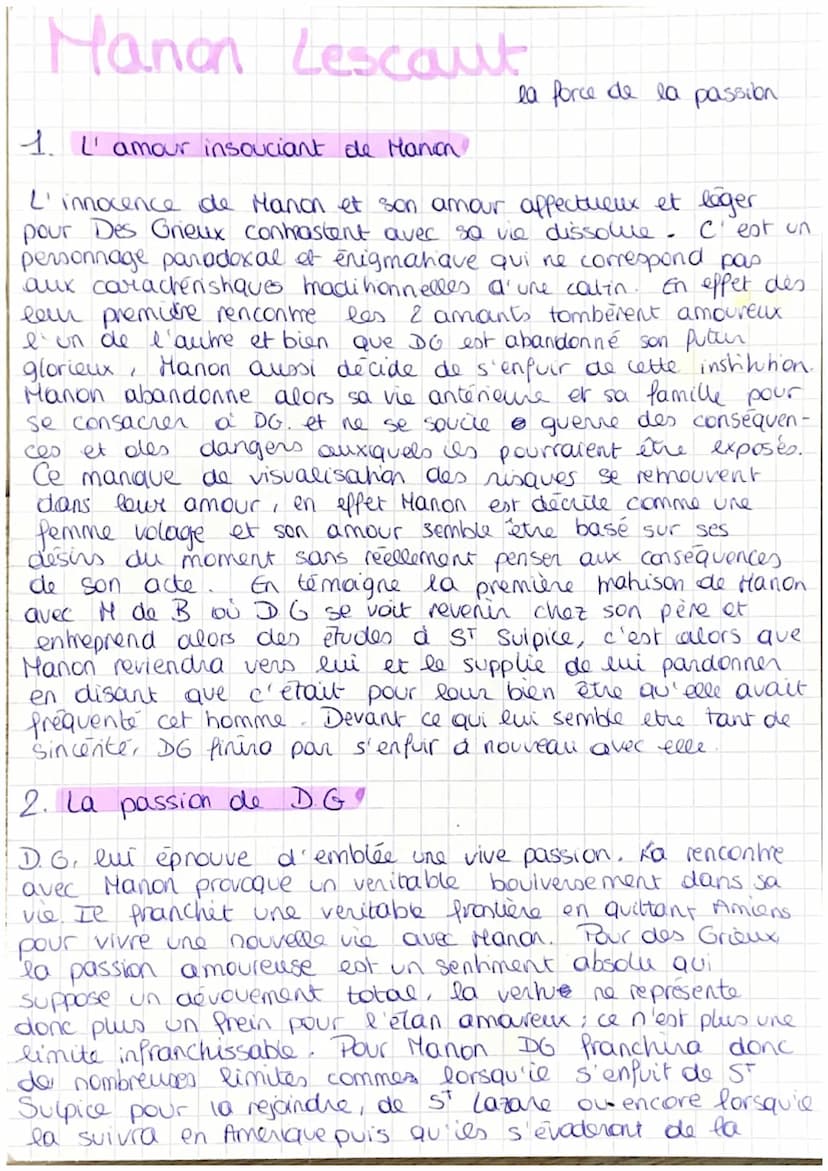 Manon Lescaut
la force de la passion
1. L'amour insouciant de Manon
L'innocence de Manon et son amour affectueux et léger
pour Des Grieux contrastent avec sa vie dissolue. C'est un
personnage paradoxal et énigmatique qui ne correspond pas
aux caractéristiques traditionnelles d'une catin. En effet dès
leur première rencontre les 2 amants tombèrent amoureux
l'un de l'autre et bien que DG est abandonné son futur
glorieux, Manon aussi décide de s'enfuir de cette institution.
Manon abandonne alors sa vie antérieure et sa famille pour
se consacrer à DG. et ne se soucie guerre des conséquen-
ces et des dangers auxiquels ils pourraient être exposés.
Ce manque de visualisation des risques se retrouvent
dans leur amour, en effet Manon est décrite comme une
femme volage et son amour semble être basé sur ses
désirs du moment sans réellement penser aux conséquences
de son acte. En témoigne la première trahison de Manon
avec M de B où DG se voit revenir chez son père et
entreprend alors des études à St Sulpice, c'est alors que
Manon reviendra vers lui et le supplie de lui pardonner
en disant que c'était pour leur bien être qu'elle avait
fréquenté cet homme. Devant ce qui lui semble etre tant de
sincérité, DG finira par s'enfuir à nouveau avec elle.
2. La passion de D.G
D.G, lui éprouve d'emblée une vive passion. La rencontre
avec Manon provoque un veritable boulversement dans sa
vie. Il franchit une veritable frontière en quittant Amiens
pour vivre une nouvelle vie avec Manon. Pour des Grieux,
la passion amoureuse est un sentiment absolu qui
suppose un dévouement total, la vertue ne représente
donc plus un frein pour l'élan amoureux ; ce n'est plus une
limite infranchissable. Pour Manon DG franchira donc
de nombreuses limites commes lorsqu'il s'enfuit de St
Sulpice pour la rejoindre, de St Lazare ou encore lorsqu'il
la suivra en Amérique puis qu'ils s'évaderont de la